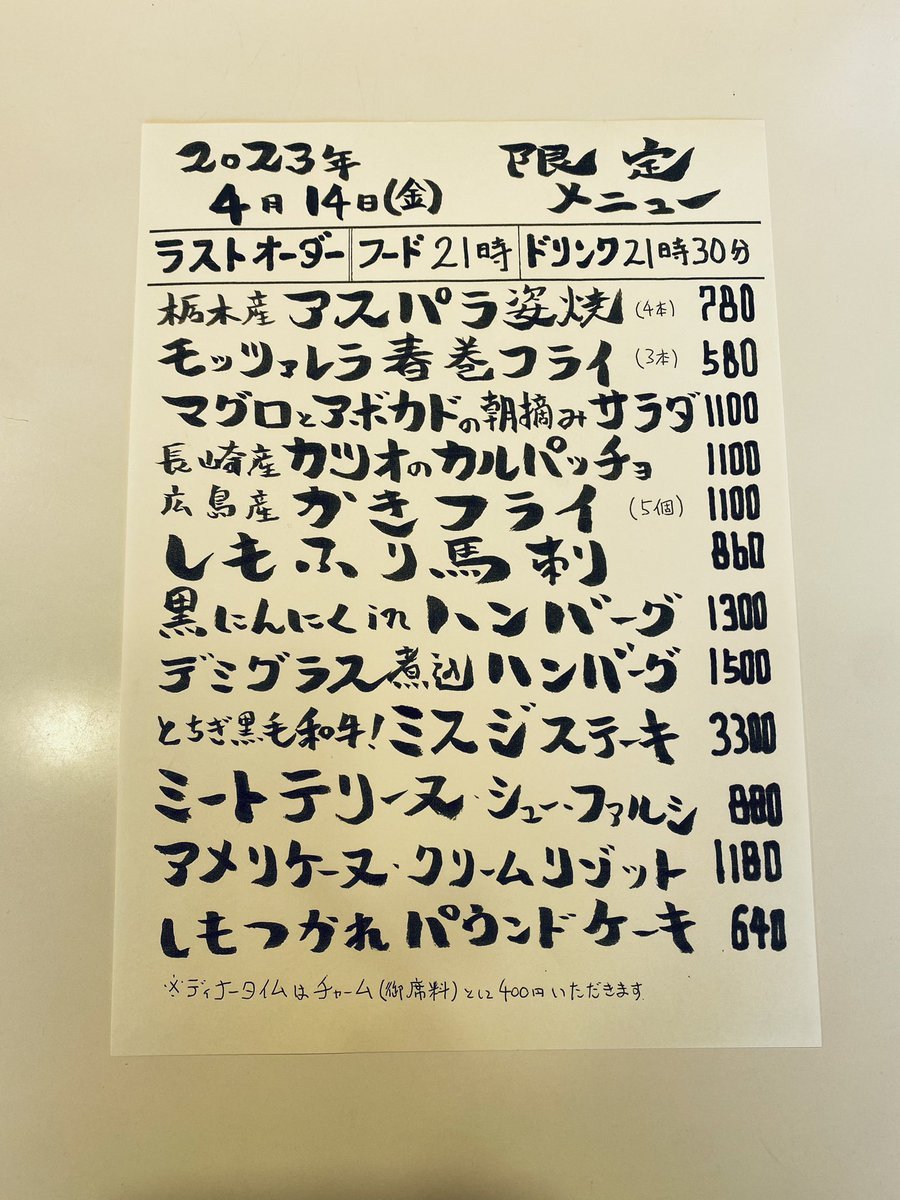 2023年 限定
4月14日(金) メニュー
ラストオーダー フード21時 ドリンク21時30分
栃木産 アスパラ姿焼 (4本) 780
モッツァレラ春巻フライ (3本) 580
マグロとアボカドの朝摘みサラダ 1100
長崎産 カツオのカルパッチョ 1100
広島産 かきフライ (5個) 1100
しもふり馬刺 860
黒にんにくinハンバーグ 1300
デミグラス煮込ハンバーグ 1500
とちぎ黒毛和牛!ミスジステーキ 3300
ミートテリーヌ・シュー・ファルシ 880
アメリケーヌ・クリームリゾット 1180
しもつかれパウンドケーキ 640
※ディナータイムはチャーム(御席料)として400円いただきます